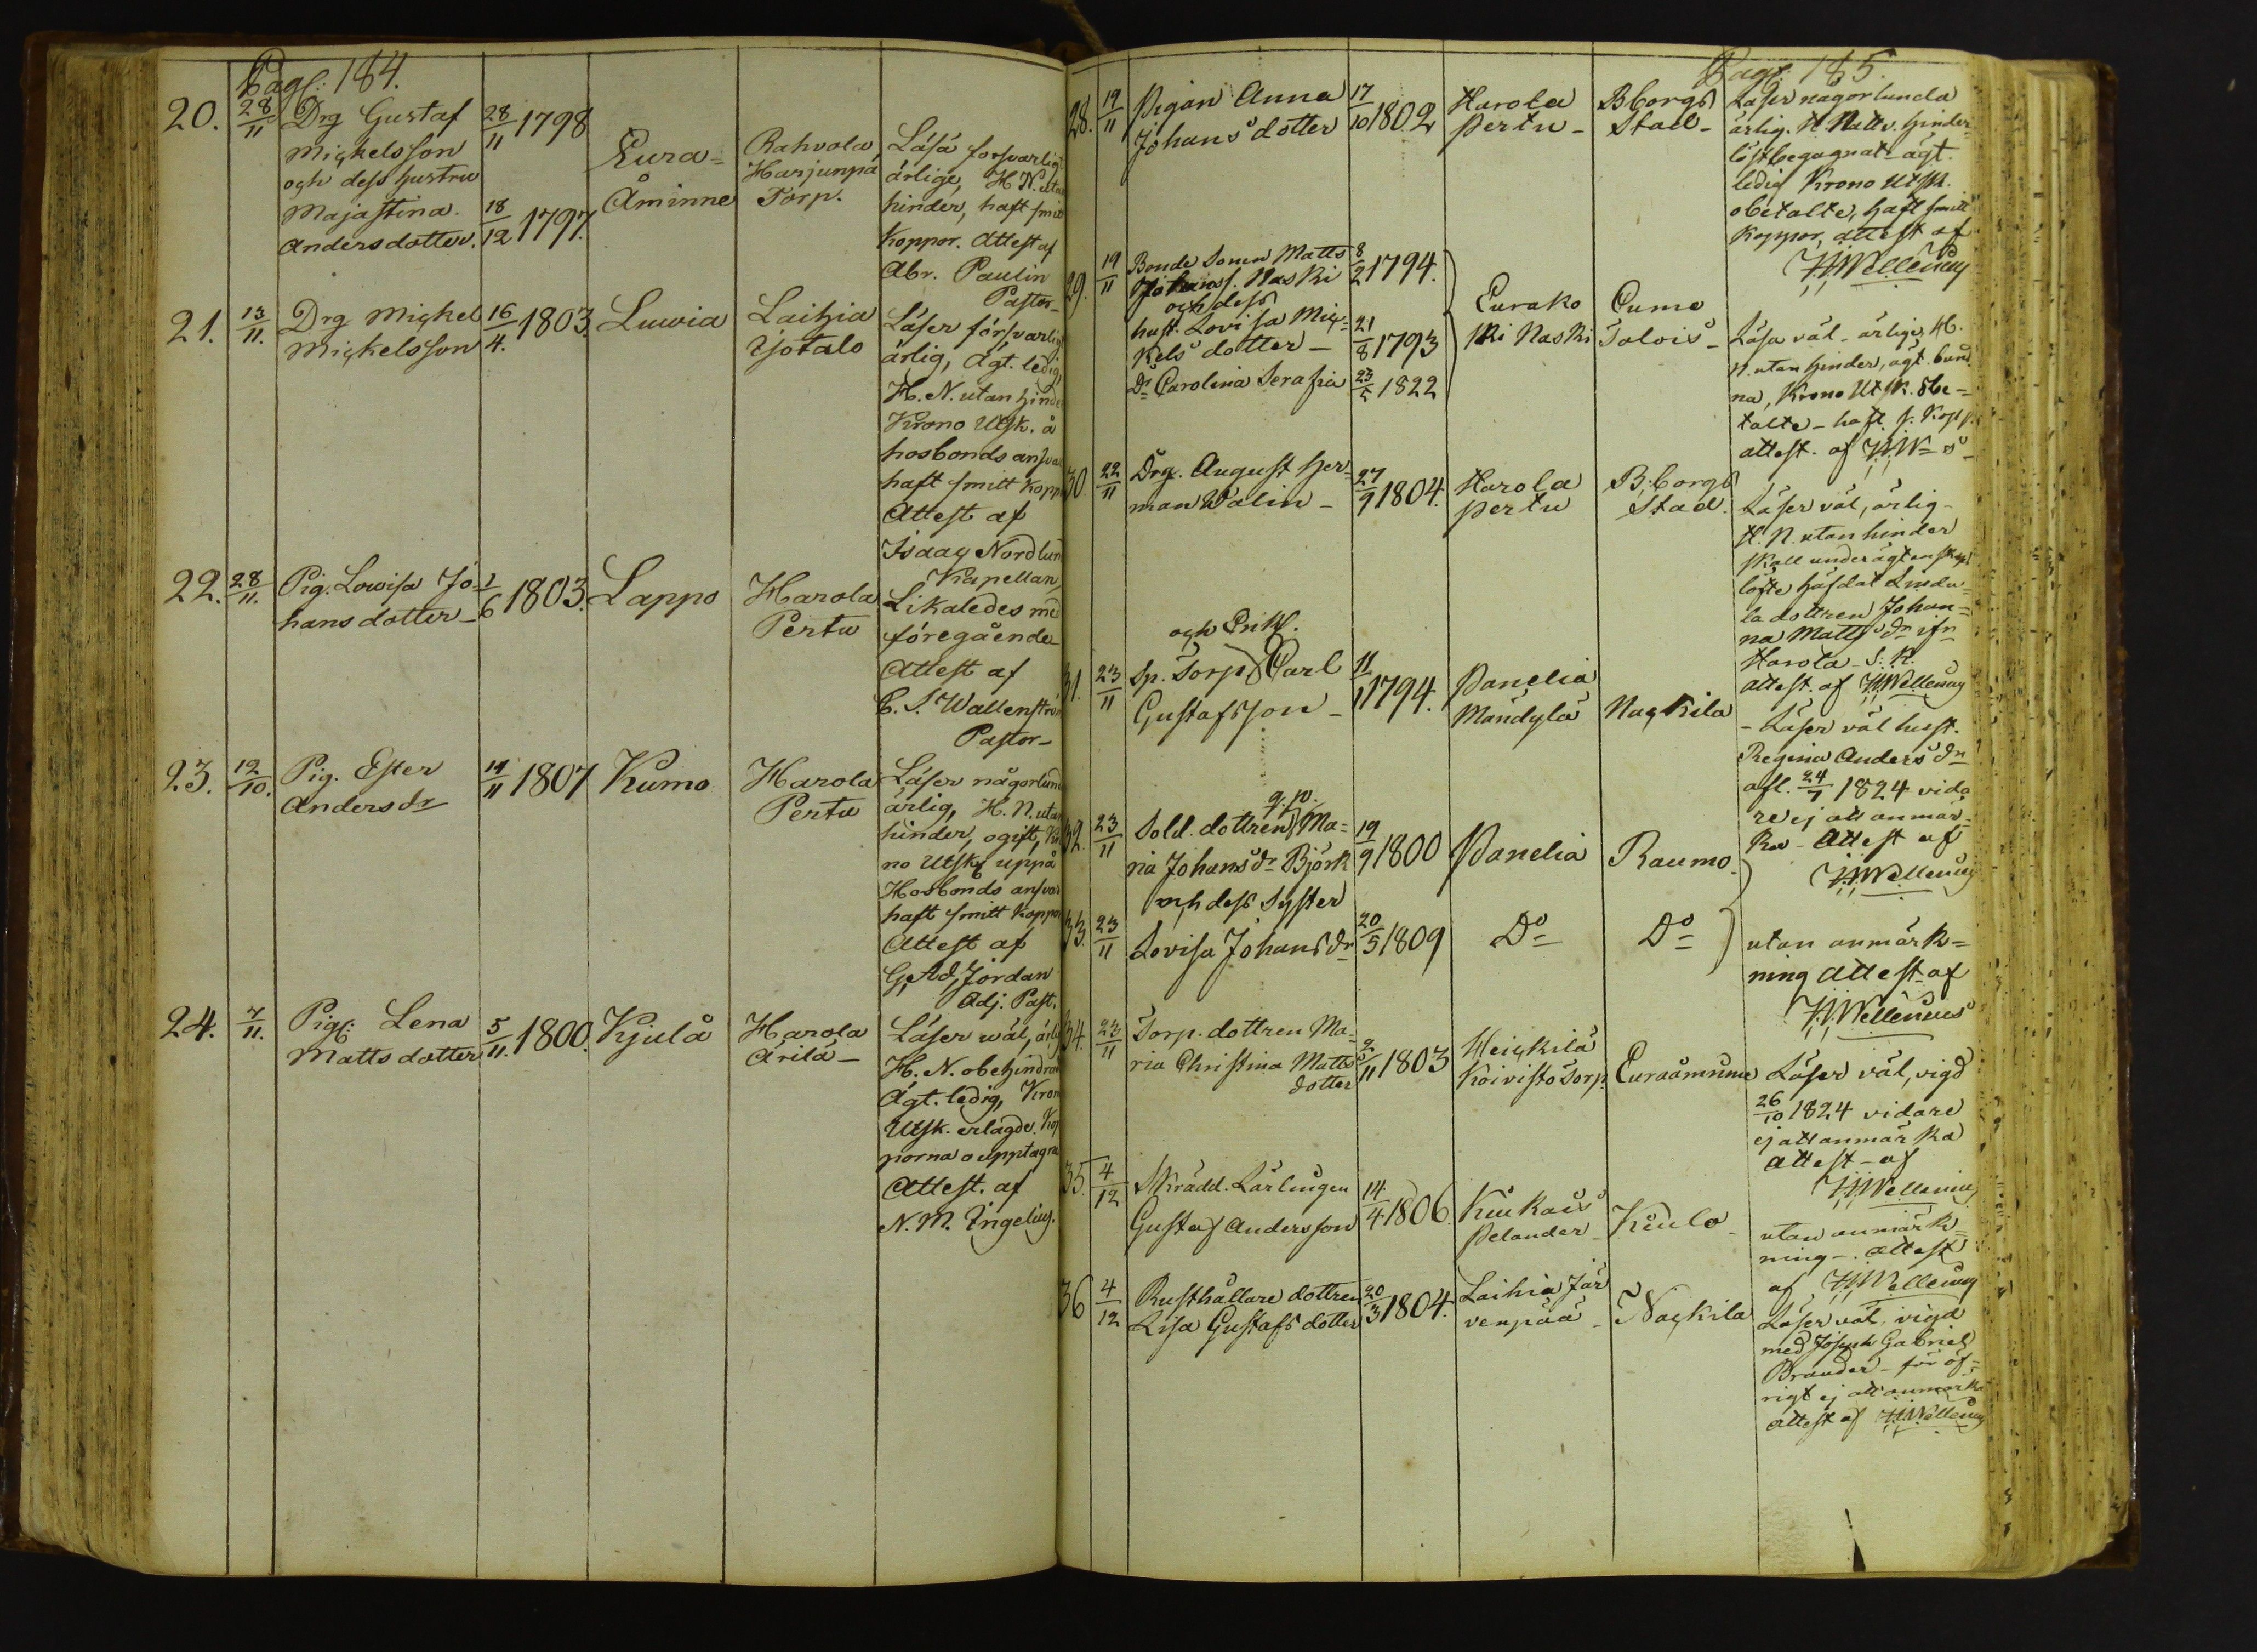 Pag: 184.
20. 28/11 Drg Gustaf 28/11 1798
Mickelsson
och dess hustru
Majastina 18/12 1797.
Andersdotter.
Eura=
Åminne
Rahvola
Harjunpä
Torp.
Läsa försvarligt
ärlige, H. N. utan
hinder, haft smit
Koppor. Attest af
Abr. Paulin
Pastor
21. 13/11. Drg Mickel 16/4. 1803. Luvia
Mickelsson
Laihia
Yjötalo
Läser försvarligt
ärlig, ägt. ledig,
H. N. utan hinder
Krono Utsk. å
hosbonds ansvar
haft smitt Koppor
Attest af
Isaac Nordlund
Kapellan
22. 28/11. Pig. Lowisa Jo- 1/6 1803. Lappo
hansdotter
Harola
Pertu
Likaledes med
föregående
Attest af
C. J. Wallenström
Pastor
23. 12/10. Pig. Ester 14/11 1807 Kumo
Anders dr
Harola
Pertu
Läser någorlunda
ärlig, H. N. utan
hinder, ogift, Kro
no Utsk uppå
Hosbonds ansvar
haft smitt Koppor
Attest af
G. Ad. Jordan
Adj. Past.
24. 7/11. Pig: Lena 5/11. 1800. Kjulå
Matts dotter
Harola
Ärilä
Läser wäl, ärlig
H. N. obehindrat
Ägt. ledig, Krono
Utsk. erlagde. Kop
porna o upptagna
Attest. af
N. M. Ingelius.
Pag: 185.
28. 19/11 Pigan Anna 17/10 1802
Johans dotter
Harola
Pertu
B borgs
Stad
Läser någorlunda
ärlig. H. Nattv. hinder
löst begagnat ägt.
ledig Krono Utsk.
obetalte, haft smitt
koppor, attest af
H. Wellenius
29. 19/11 Bonde Sonen Matts 8/2 1794.
Johanss. Naski
och dess
hust. Lovisa Mic= 21/8 1793
kels dotter
Dr Carolina Serafia 23/5 1822
Eurako
ski Naski
Cumo
Torlois
Läsa väl ärlige, H.
N. utan hinder, ägt. bund
na, Krono Utsk. obe=
talte haft s. Kopp.
attest. af H. W s
30. 22/11 Drg. August Her= 27/9 1804.
man Walin
Harola
Pertu
B: borgs
Stad.
Läser väl, ärlig
H. N. utan hinder
skall under ägtenskaps
löfte häfdat
la dottren Johan=
na Matts dr ifr
Harola S. K.
attest. af H. Wellenius
31. 23/11 och Enkl.
Sp. Torp Carl 11/1 1794.
Gustafsson
Panelia
Mändylä
Nackila
Läser väl hust.
Regina Anders dr
afl. 24/7 1824 vida
re ej att anmär=
ka. Attest af
H. Wellenius
32. 23/11 q. p.
Sold. dottren Ma= 19/9 1800
ria Johans dr Björk
och dess Syster
Panelia
Raumo
33. 23/11 Lovisa Johans dr 20/5 1809
Do
Do
utan anmärk=
ning Attest af
H. Wellenius
34. 23/11 Torp. dottren Ma= 2/11 1803
ria Christina Matts
dotter
Heickilä
Koivisto Torp.
Euraåminne
Läser väl, vigd
26/10 1824 vidare
ej att anmärka
attest af
H. Wellenius
35. 4/12 Skrädd. Lärlingen 14/4 1806.
Gustaf Andersson
Kiukais
Pelander
Kiulo
utan anmärk=
ning. attest
af H. Wellenius
36 4/12 Rusthållare dottren 20/3 1804.
Lisa Gustafs dotter
Laihia Jär
venpää
Nackila
Läser väl, vigd
med Joseph Gabriel
Brander för öf=
rigt ej att anmärka
attest af H. Wellenius